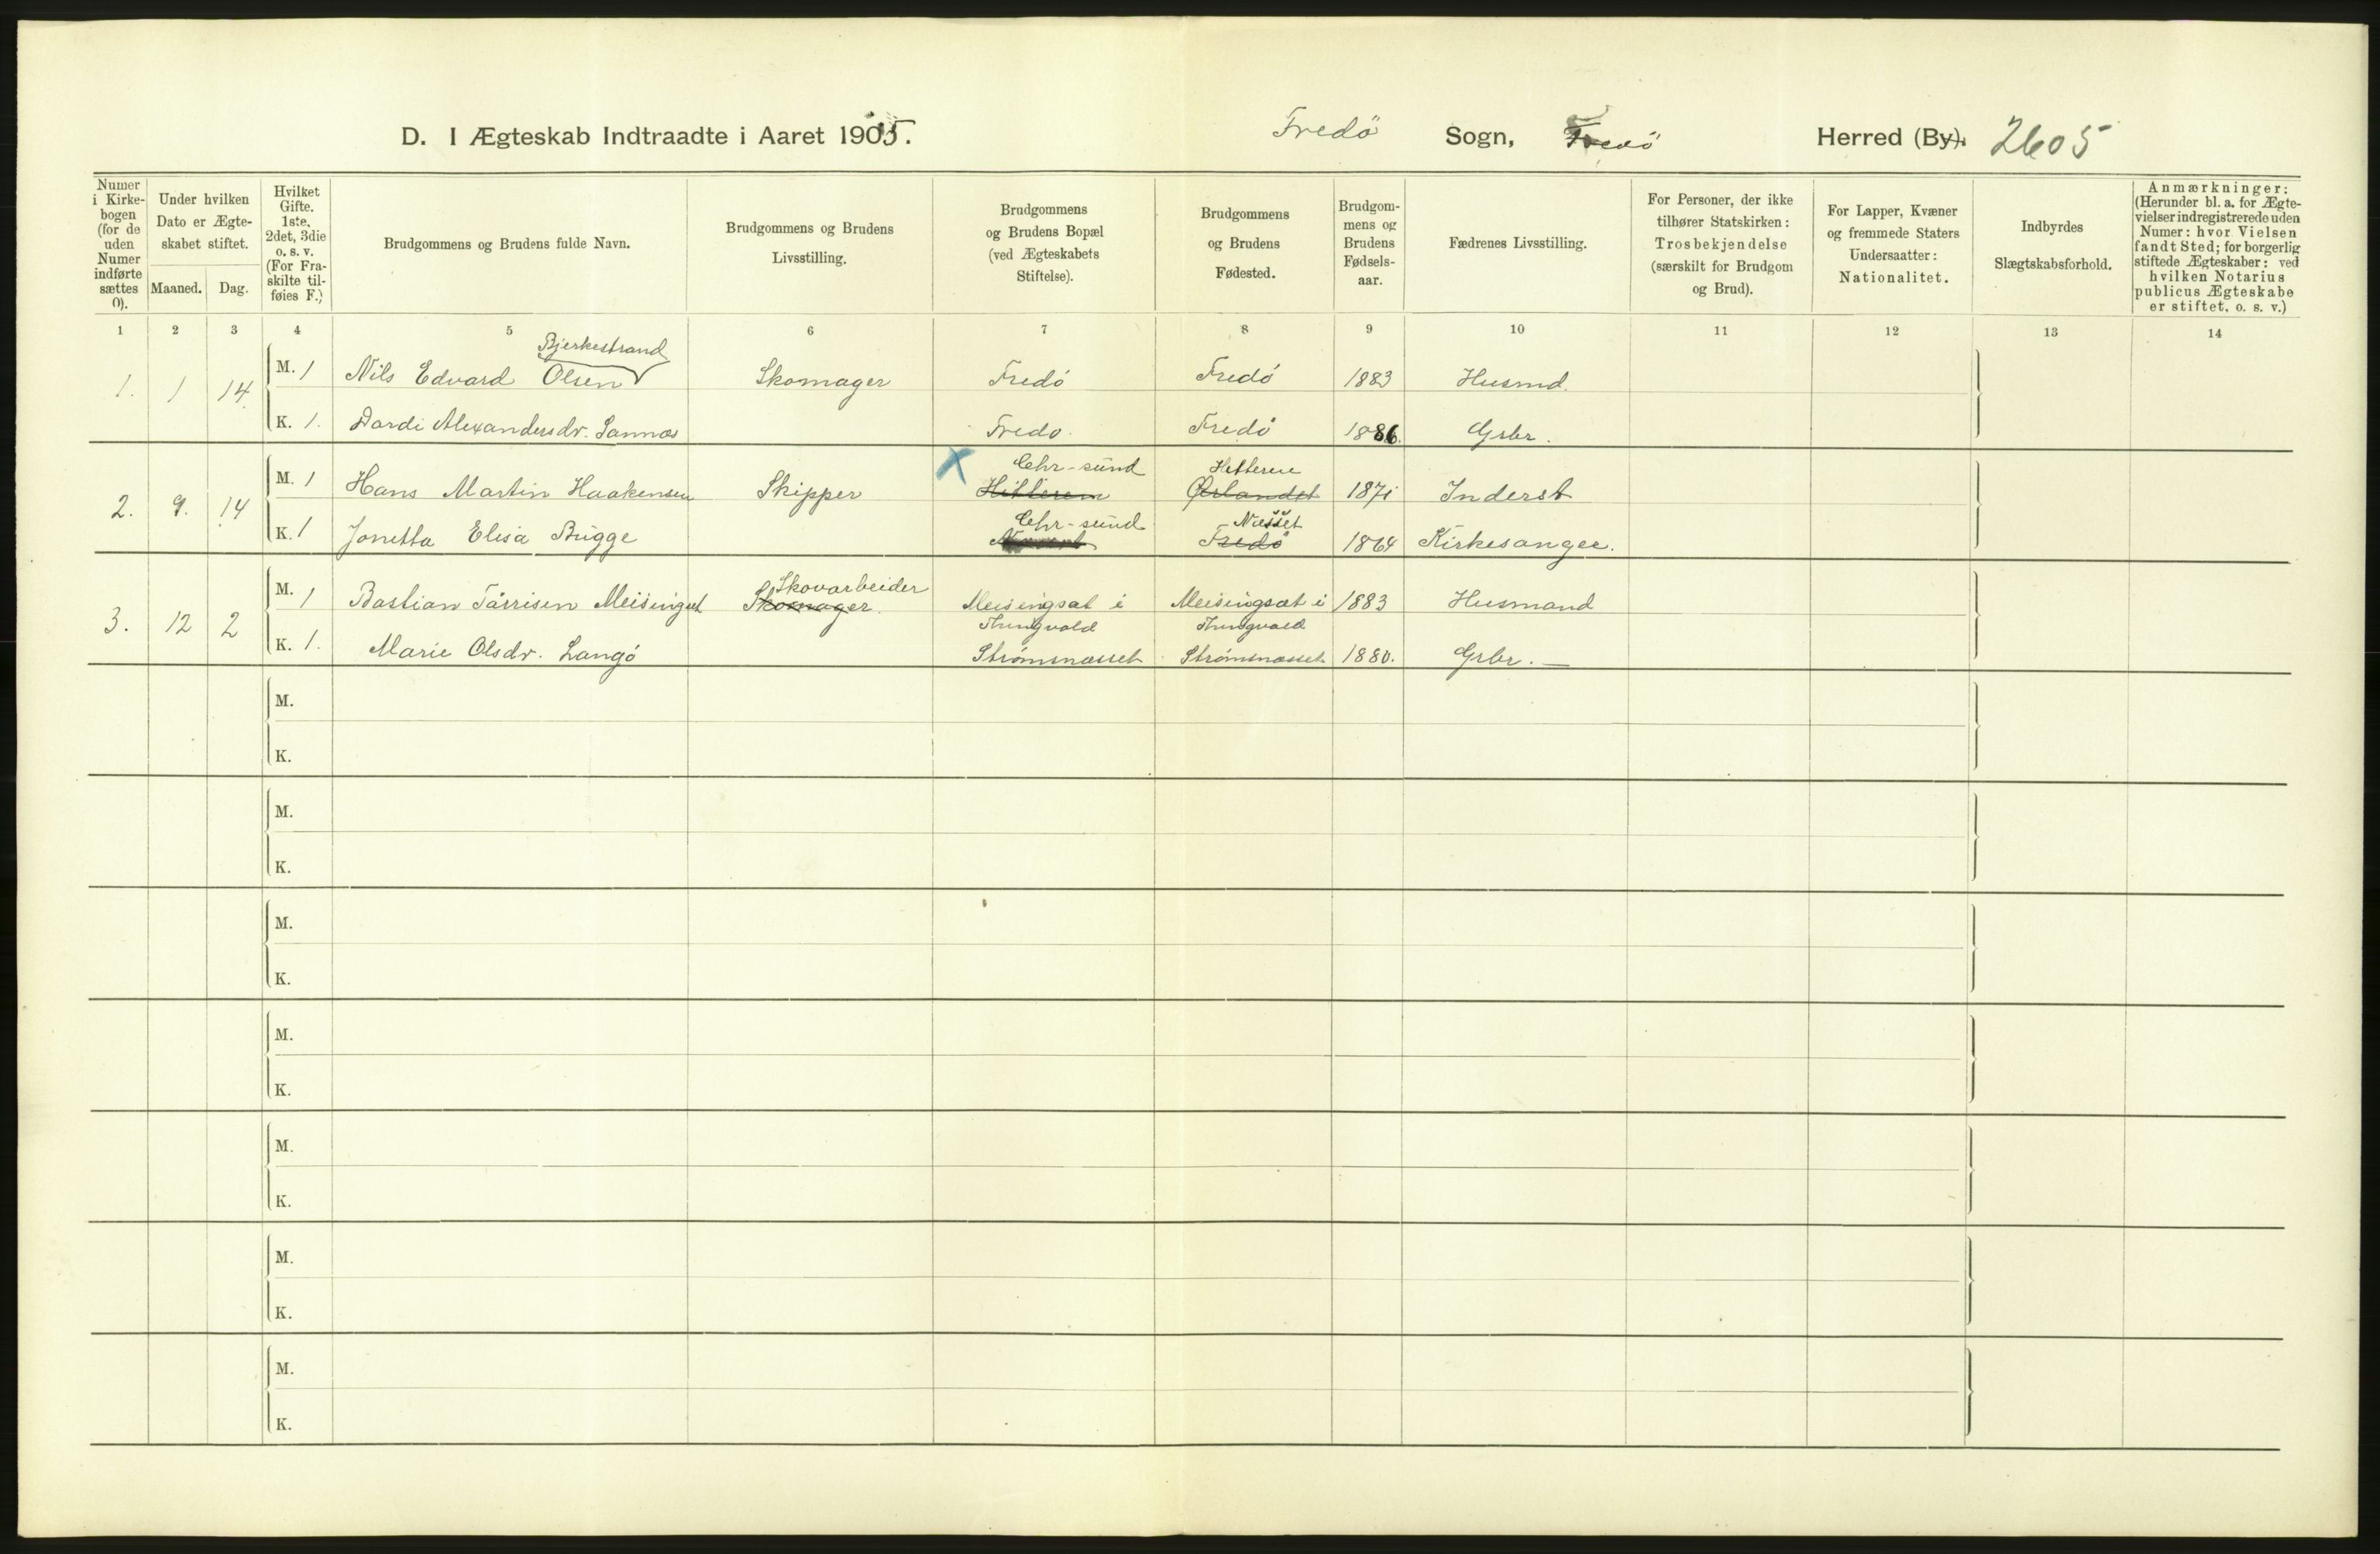 D. I Ægteskab Indtraadte i Aaret 1905. Fredö Sogn, Fredö Herred (By). 2605
Numer i Kirkebogen (for de uden Numer indførte sættes 0).
Under hvilken Dato er Ægteskabet stiftet.
Maaned. Dag.
Hvilket Gifte. 1ste, 2det, 3die o. s. v. (For Fraskilte tilføies F.)
Brudgommens og Brudens fulde Navn.
Brudgommens og Brudens Livsstilling.
Brudgommens og Brudens Bopæl (ved Ægteskabets Stiftelse).
Brudgommens og Brudens Fødested.
Brudgommens og Brudens Fødselsaar.
Fædrenes Livsstilling.
For Personer, der ikke tilhører Statskirken: Trosbekjendelse (særskilt for Brudgom og Brud).
For Lapper, Kvæner og fremmede Staters Undersaatter: Nationalitet.
Indbyrdes Slægtskabsforhold.
Anmærkninger: (Herunder bl. a. for Ægtevielser indregistrerede uden Numer: hvor Vielsen fandt Sted; for borgerlig stiftede Ægteskaber: ved hvilken Notarius publicus Ægteskabe er stiftet, o. s. v.)
1 2 3 4 5 6 7 8 9 10 11 12 13 14
Bjerkestrand
1. 1 14 M. 1 Nils Edvard Olsen Skomager Fredö Fredö 1883 Husmd.
K. 1. Dordi Alexandersdr. Sannæs Fredö Fredö 1886. Grbr.
Chr-sund Hitteren
2. 9. 14 M. 1 Hans Martin Haakensen Skipper Hitteren Ørlandet 1871 Inderst
Chr-sund Næsset
K. 1 Jonetta Elisa Bugge Fredö 1864 Kirkesanger.
Skovarbeider
3. 12 2 M. 1 Bastian Tårrisen Meisingset Skomager. Meisingsæt i Meisingsæt i 1883 Husmand
Thingvold Thingvold
K. 1. Marie Olsdr. Langö Strömsnæsset Strömsnæsset 1880. Grbr. —
M.
K.
M.
K.
M.
K.
M.
K.
M.
K.
M.
K.
M.
K.